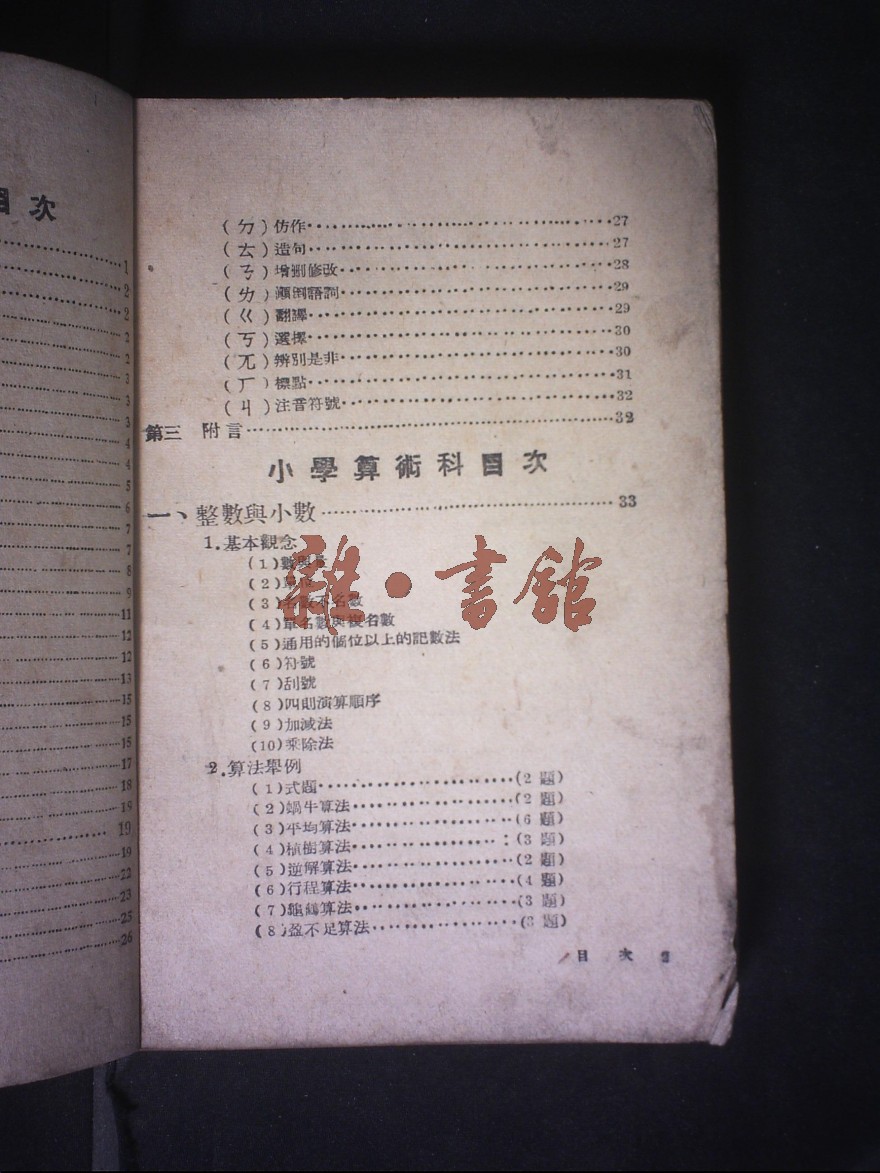 目次
1
2
2
2
2
3
3
3
4
4
5
6
7
7
8
9
11
12
12
13
15
15
15
17
18
19
19
19
22
23
25
26
(ㄉ)仿作27
(ㄊ)造句27
(ㄋ)增删修改28
(ㄌ)顚倒語詞29
(ㄍ)翻譯29
(ㄎ)選擇30
(ㄫ)辨別是非30
(ㄏ)標點31
(ㄐ)注音符號32
第三 附言32
小學算術科目次
一、整數與小數33
1.基本觀念
(1)數與量
(2)單位
(3)名數不名數
(4)單名數與複名數
(5)通用的個位以上的記數法
(6)符號
(7)刮號
(8)四則演算順序
(9)加减法
(10)乘除法
2.算法舉例
(1)式題(2題)
(2)蝸牛算法(2題)
(3)平均算法(6題)
(4)植樹算法(3題)
(5)逆解算法(2題)
(6)行程算法(4題)
(7)龜鶴算法(3題)
(8)盈不足算法(3題)
目次 2
雜·書館